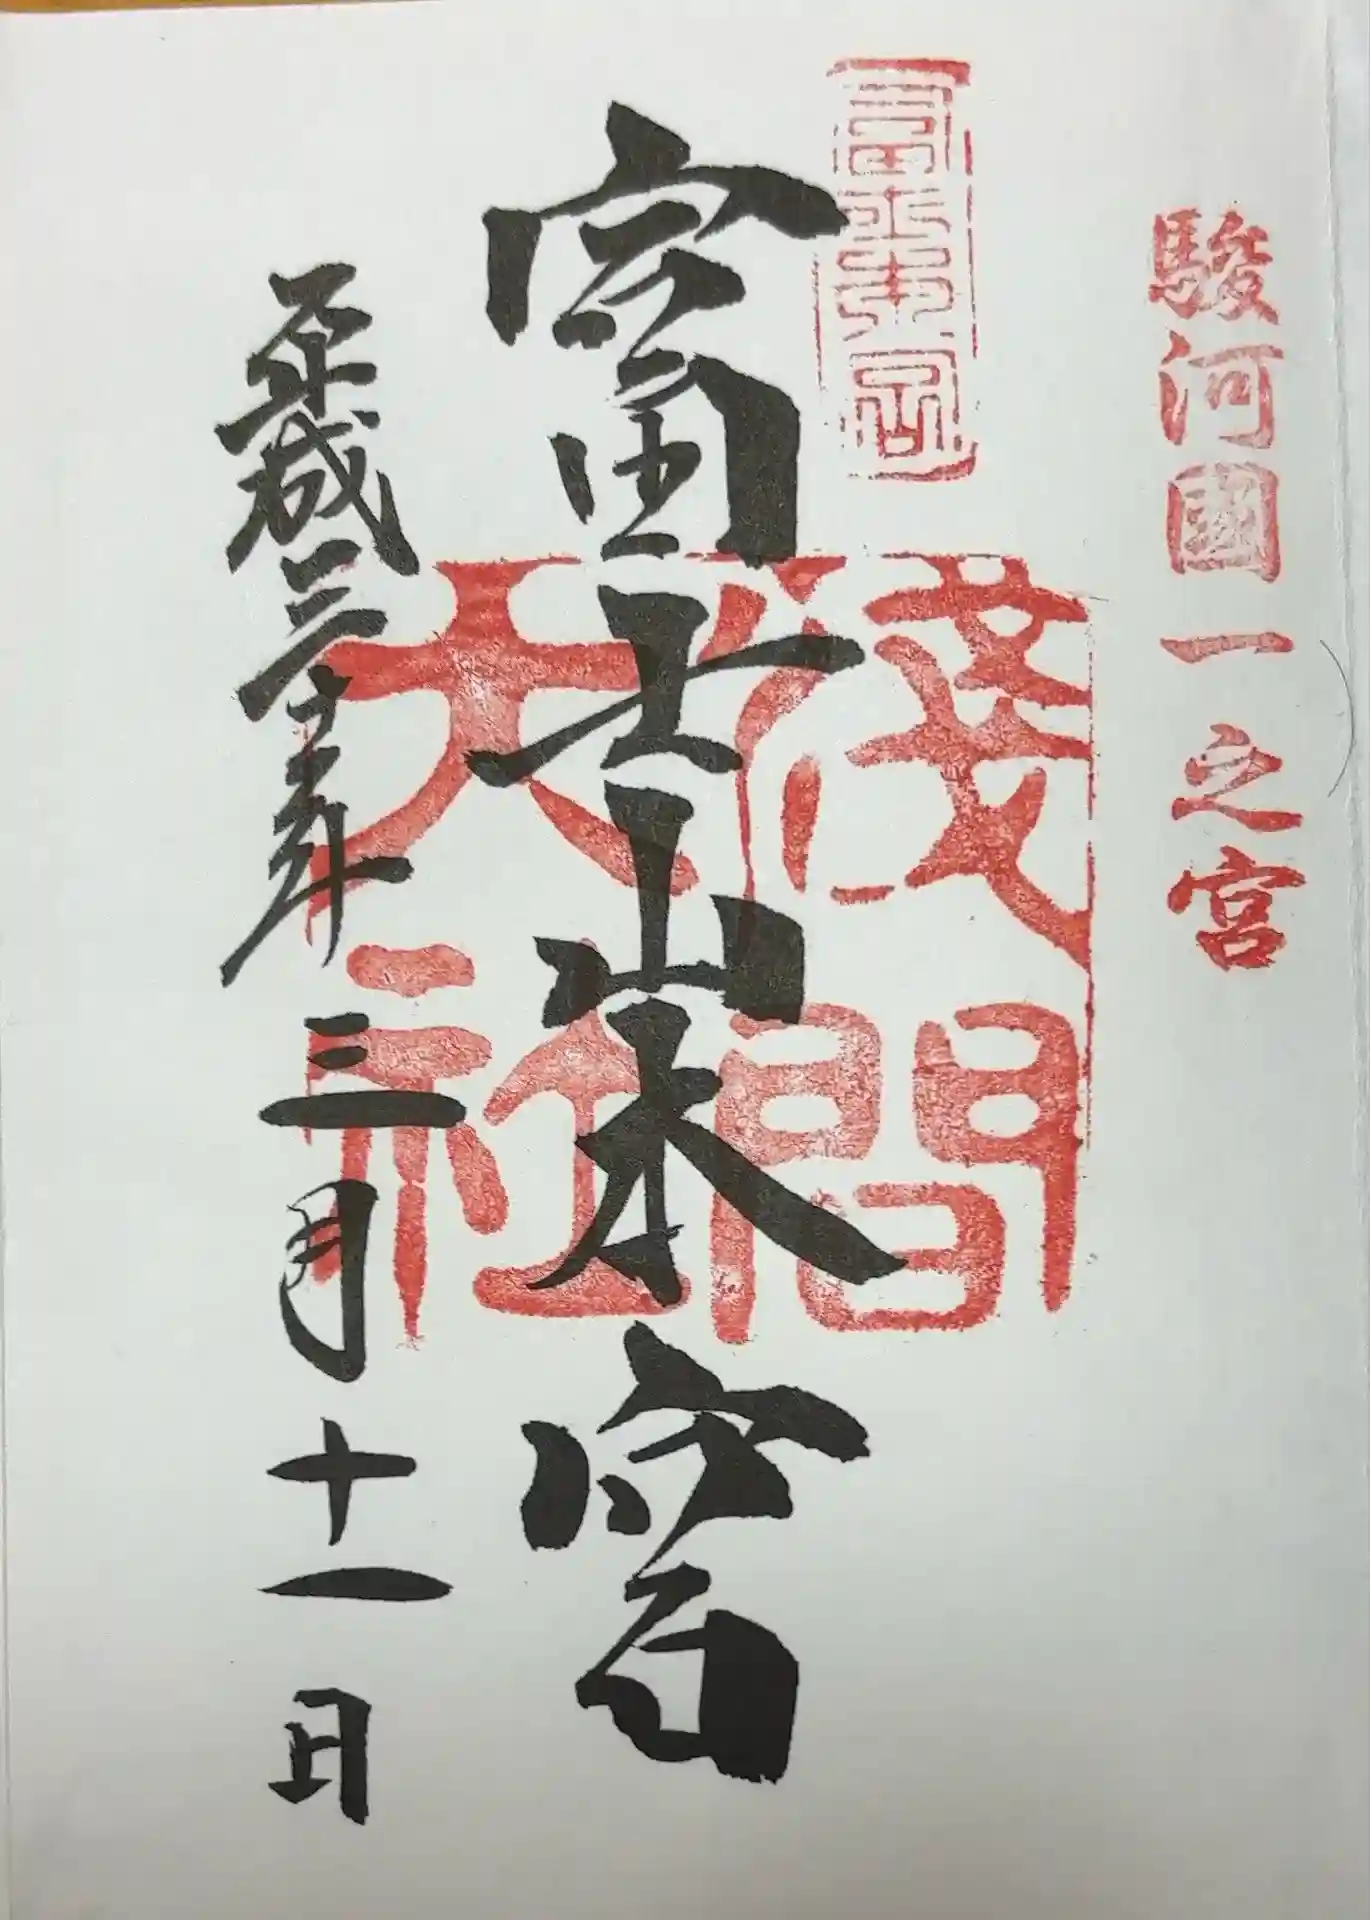 駿河國一之宮
淺間
大社
富士山本宮
平成三十年三月十一日